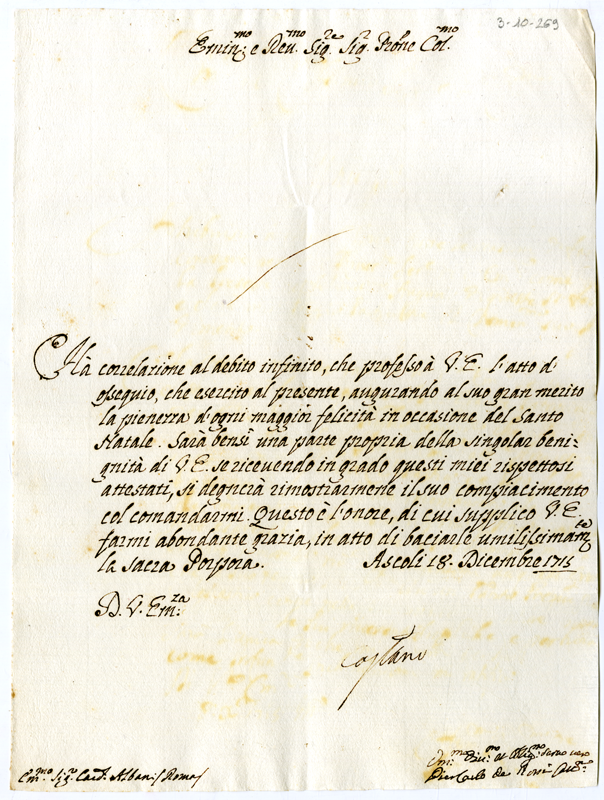 3-10-269
Emin.mo e Rev.mo Sig.re Sig.r Prõne Col.mo
Hà correlatione al debito infinito, che professo à V. E. l'atto d'
ossequio, che esercito al presente, augurando al suo gran merito
la pienezza d'ogni maggior felicità in occasione del Santo
Natale. Sarà bensi una parte propria della singolar beni-
gnità di V. E. se ricevendo in grado questi miei rispettosi
attestati, si degnerà rimostrarmene il suo compiacimento
col comandarmi. Questo è l'onore, di cui supplico V. E.
farmi abondante grazia, in atto di baciarle umilissimam.te
la sacra Porpora. Ascoli 18. Dicembre 1715
D. V. Em.za
Em.mo Sig.r Card. Albani Roma
Um.mo Div.mo et Oblig.mo Servo vero